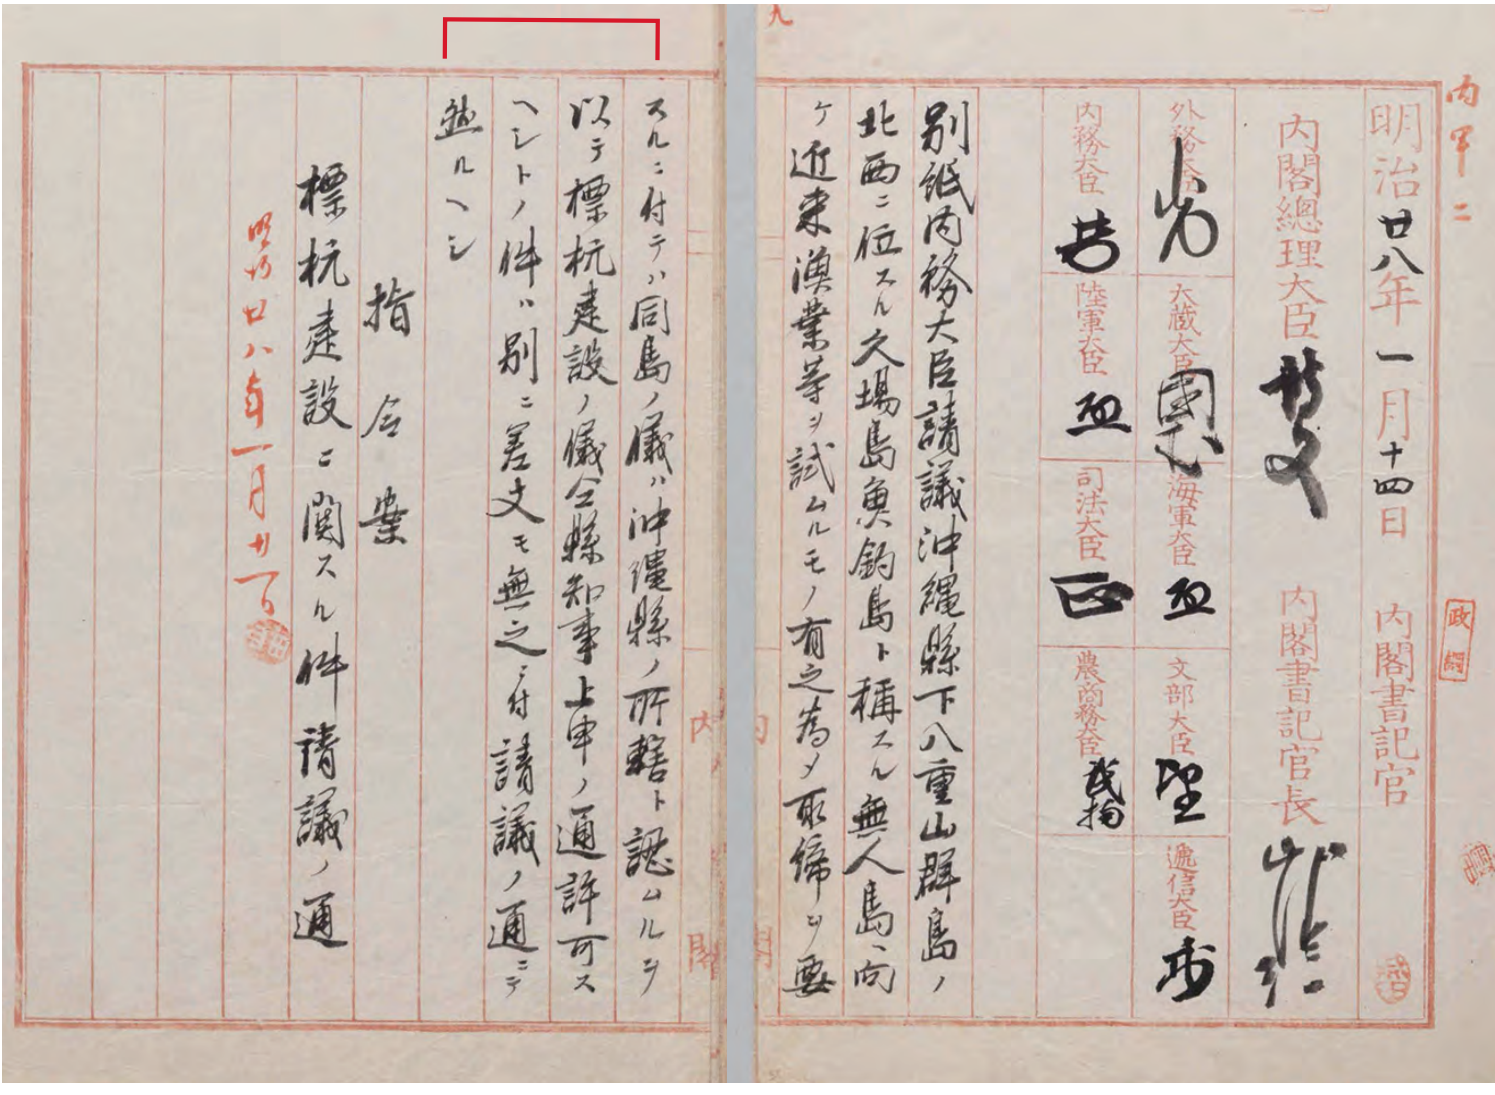 内甲二
明治廿八年一月十四日 内閣書記官
内閣總理大臣 内閣書記官長
外務大臣 大藏大臣 海軍大臣 文部大臣 遞信大臣
内務大臣 陸軍大臣 司法大臣 農商務大臣
別紙内務大臣請議沖縄縣下八重山群島ノ
北西ニ位スル久場島魚釣島ト稱スル無人島ヘ向
ケ近来漁業等ヲ試ムルモノ有之為メ取締ヲ要
スルニ付テハ同島ノ儀ハ沖縄縣ノ所轄ト認ムルヲ
以テ標杭建設ノ儀仝縣知事上申ノ通許可ス
ヘシトノ件ハ別ニ差支モ無之ニ付請議ノ通ニテ
然ルヘシ
指令案
標杭建設ニ関スル件請議ノ通
明治廿八年一月廿一日